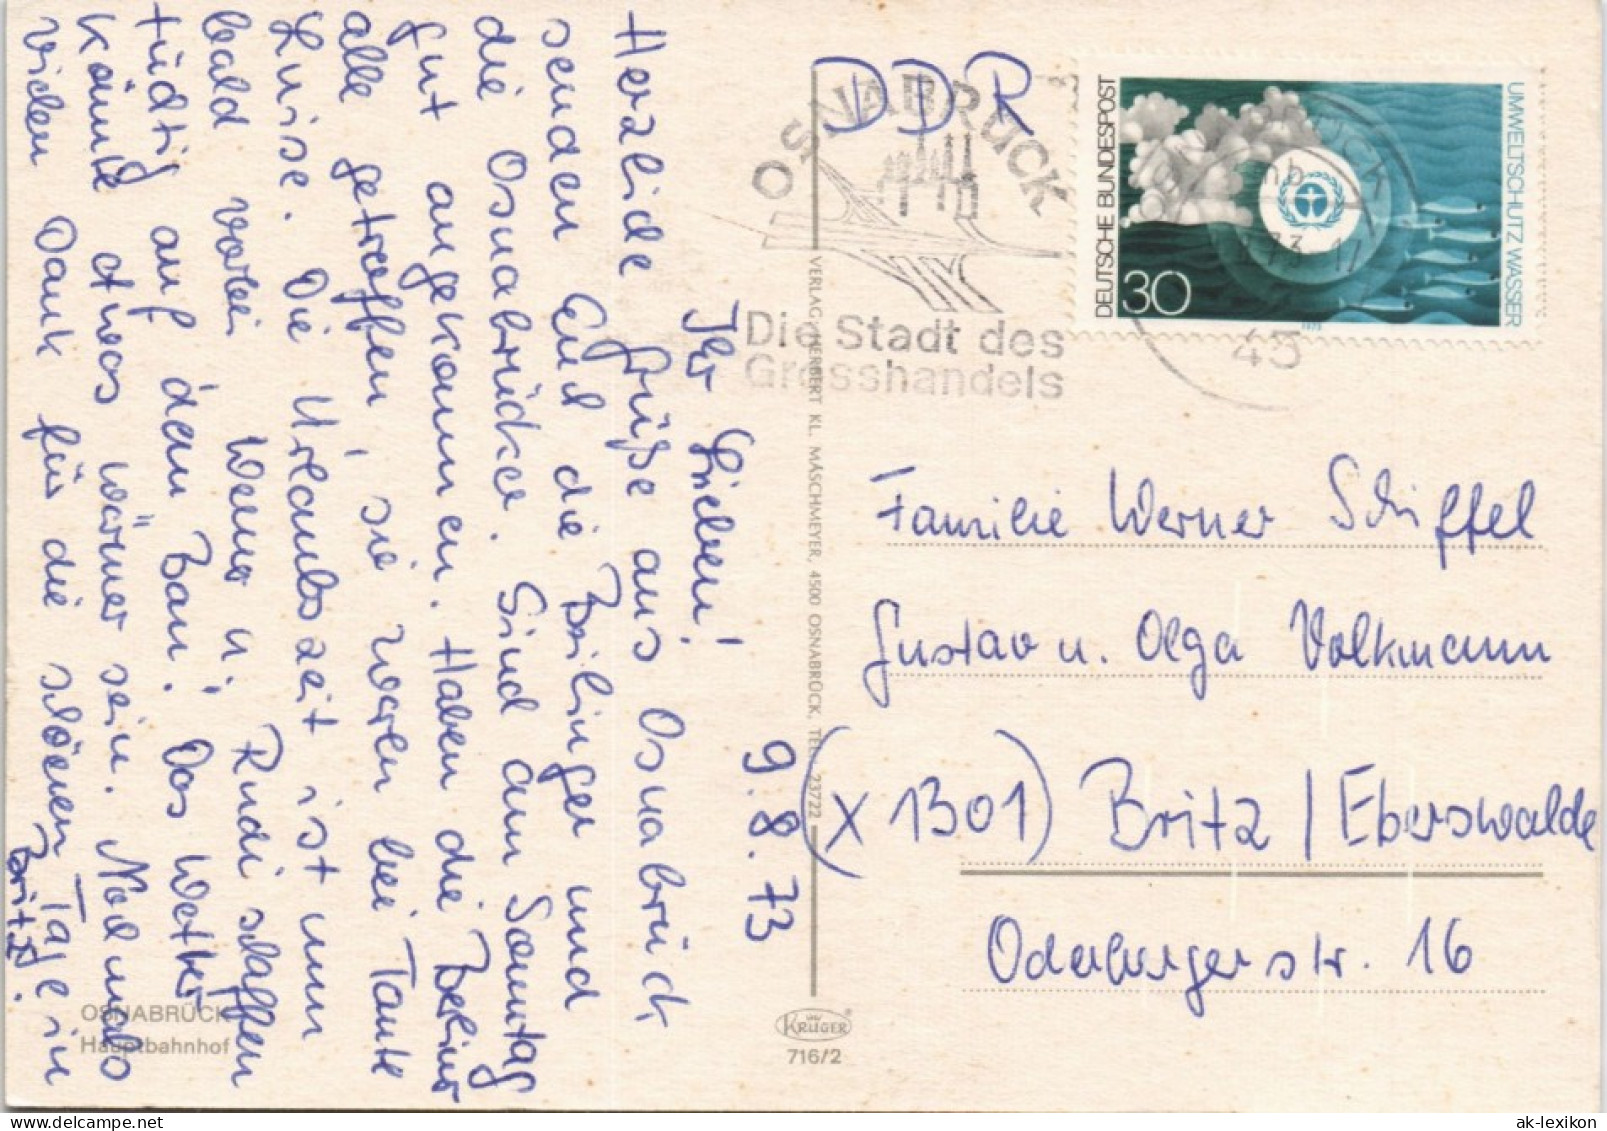 9.8.73
Ihr Lieben!
Herzliche Grüße aus Osnabrück
senden Euch die Brilinger und
die Osnabrücker. Sind am Sonntag
gut angekommen. Haben die Berliner
alle getroffen, sie waren bei Tante
Luise. Die Urlaubszeit ist nun
bald vorbei Werner u. Rudi schaffen
tüchtig auf dem Bau. Das Wetter
könnte etwas wärmer sein. Nochmals
vielen Dank für die schönen Tage in
Britz.
DDR
OSNABRÜCK
Die Stadt des
Grosshandels
DEUTSCHE BUNDESPOST
30
UMWELTSCHUTZ WASSER
1973
45
VERLAG HERBERT KL. MÄSCHMEYER, 4500 OSNABRÜCK, TEL. 23722
Familie Werner Schiffel
Gustav u. Olga Volkmann
(X 1301) Britz / Eberswalde
Oderbergerstr. 16
OSNABRÜCK
Hauptbahnhof
KRÜGER
716/2
ak-lexikon.com